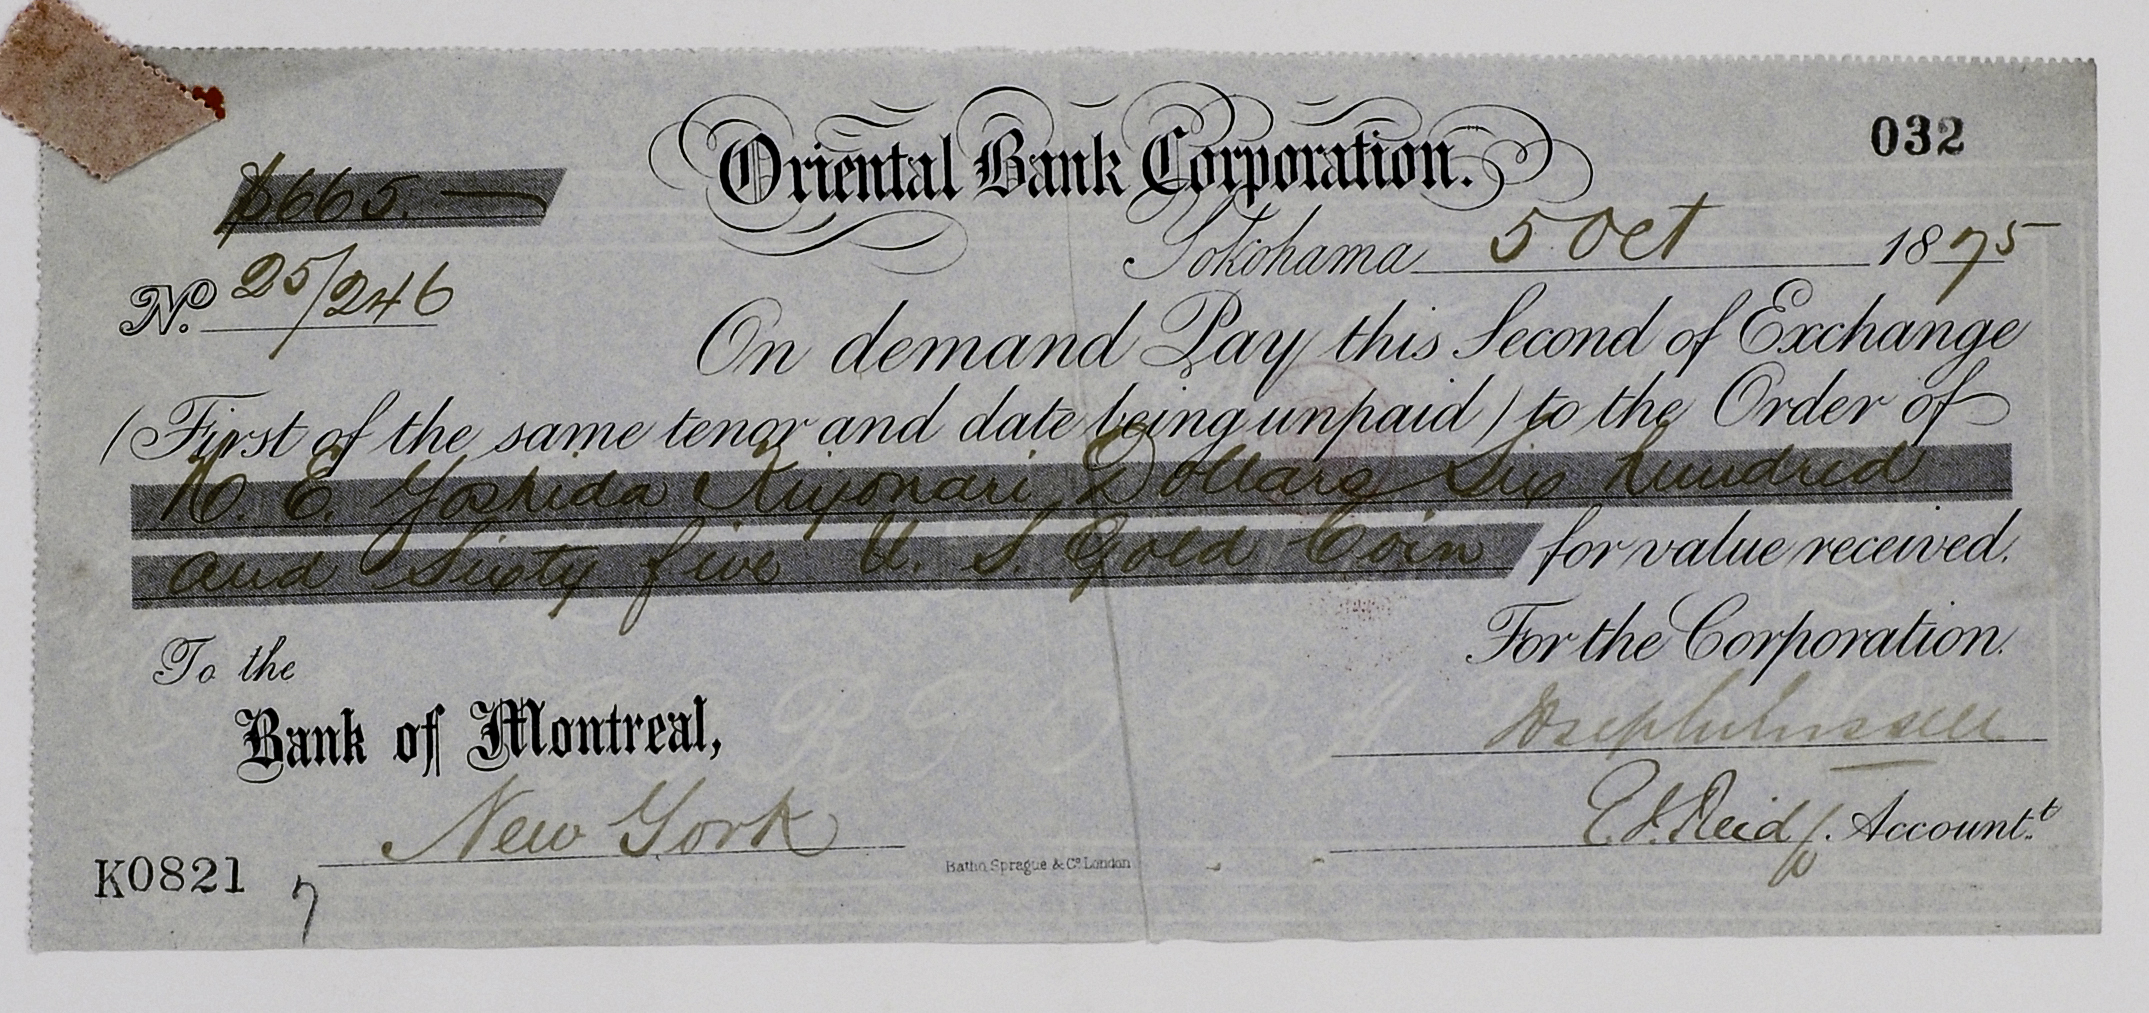 Oriental Bank Corporation.
032
$665. —
Yokohama 5 Oct 1875
No. 25/246
On demand Pay this Second of Exchange
(First of the same tenor and date being unpaid) to the Order of
H. E. Yoshida Kiyonari, Dollars Six hundred
and Sixty five U. S. Gold Coin for value received.
To the
For the Corporation.
Bank of Montreal,
New York
E. J. Reid f. Account.t
K0821
7
Batho, Sprague & Co. London